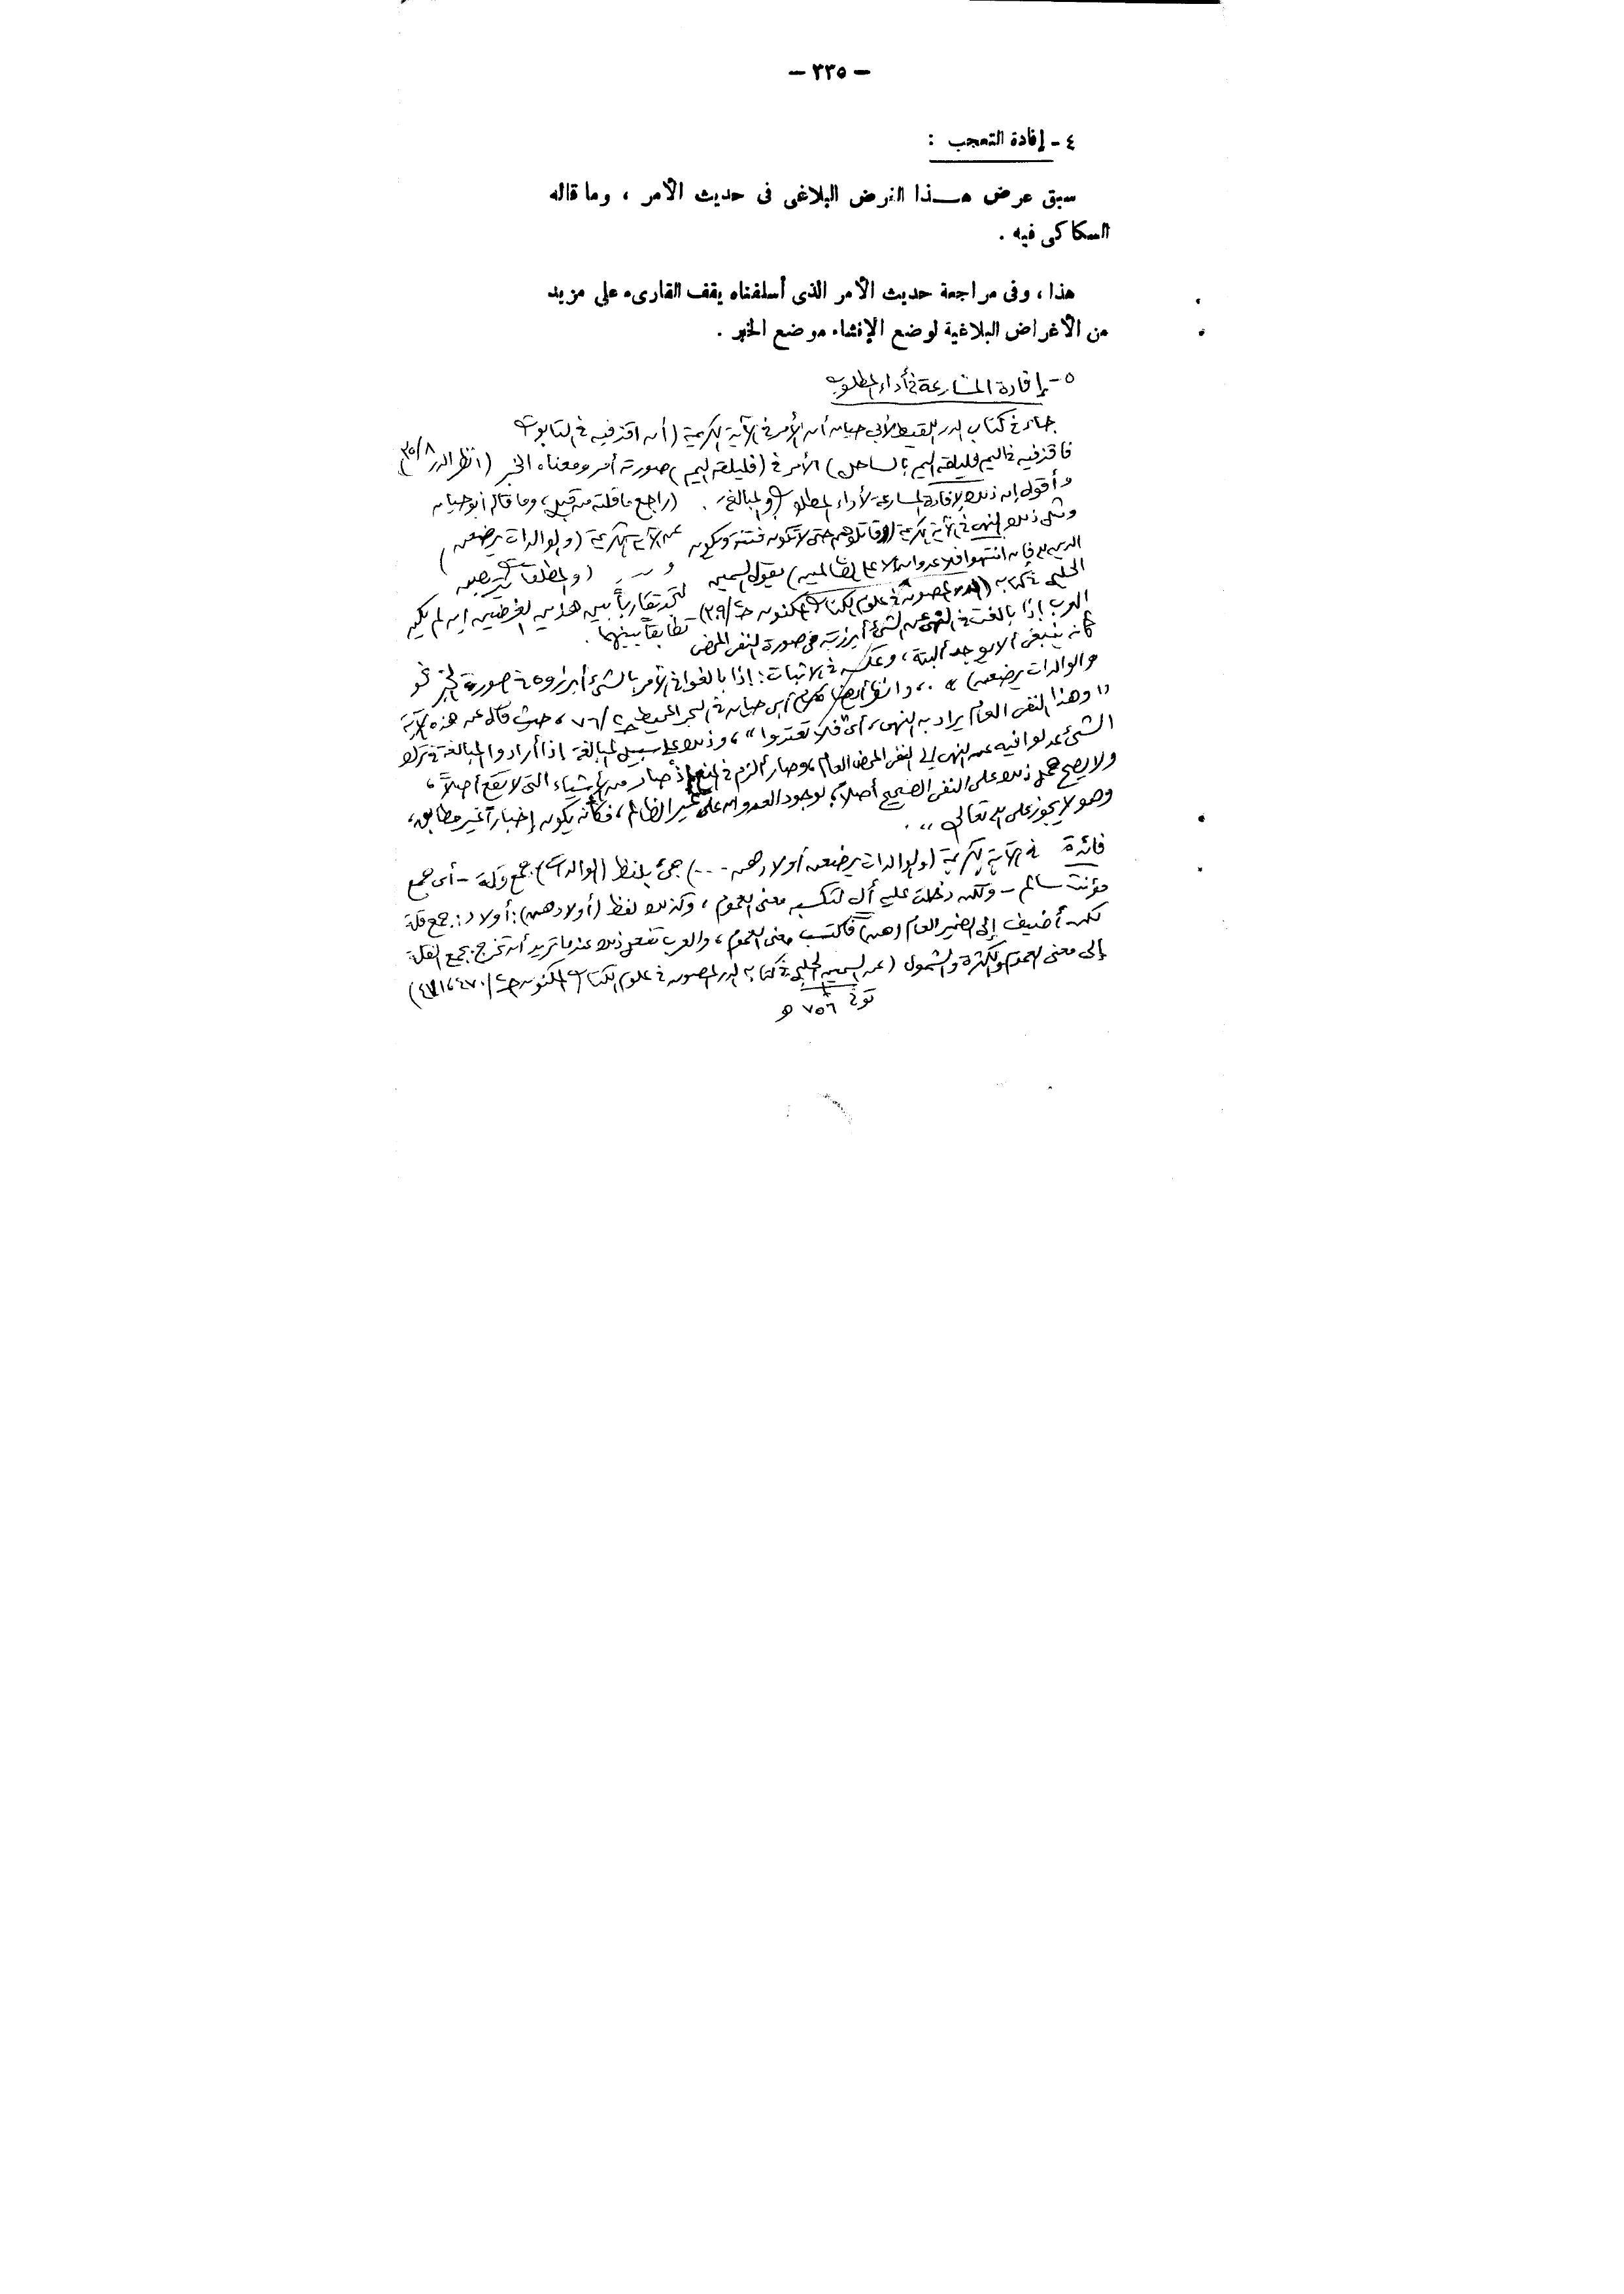 – ٣٣٥ –
٤ - إفادة التعجب :
سبق عرض هـــذا الغرض البلاغى فى حديث الأمر ، وما قاله
السكاكى فيه .
هذا ، وفى مراجعة حديث الأمر الذى أسلفناه يقف القارىء على مزيد
من الأغراض البلاغية لوضع الإنشاء موضع الخبر .
٥ - إفادة المسارعة فى أداء المطلوب
جاء فى كتاب الدر اللقيط لأبى حيان أن الأمر فى الآية الكريمة (أن اقذفيه فى التابوت
فاقذفيه فى اليم فليلقه اليم بالساحل) الأمر فى (فليلقه اليم) صورته أمر ومعناه الخبر (انظر الدر ٨/٣٥)
وأقول إن ذلك لإفادة المسارعة لأداء المطلوب والمبالغة . (راجع ما قلته من قبل، وما قاله أبو حيان
ومثل ذلك النهى فى الآية الكريمة (وقاتلوهم حتى لا تكون فتنة ويكون عن الآية الكريمة (والوالدات يرضعن)
الدين لله فإن انتهوا فلا عدوان إلا على الظالمين) يقول السمين و (والمطلقات يتربصن
الحلبى فى كتابه (الدر المصون فى علوم الكتاب المكنون ج٢/٣٠٩) لتجد تقارباً بين هذين الغرضين إن لم يكن تطابقاً بينهما.
العرب إذا بالغت فى النهى عن الشىء أبرزته فى صورة النفى المحض
كأنه ينبغى ألا يوجد ألبتة، وعكسه فى الإثبات: إذا بالغوا فى الأمر بالشىء أبرزوه فى صورة الخبر نحو
والوالدات يرضعن) ». ، وانظر أيضا كلام أبى حيان فى البحر المحيط ج٢/٧٦، حيث قال عن هذه الآية
"وهذا النفى العام يراد به النهى، أى "فلا تعتدوا"، وذلك على سبيل المبالغة إذا أرادوا المبالغة فى ترك
الشىء عدلوا فيه عن النهى إلى النفى المحض العام، وصار ألزم فى المنع إذ صار من الأشياء التى لا تقع أصلاً،
ولا يصح حمل ذلك على النفى الصحيح أصلاً، لوجود العدوان على غير الظالم، فكأنه يكون إخباراً غير مطابق،
وهو لا يجوز على الله تعالى ،، .
فائدة فى الآية الكريمة (والوالدات يرضعن أولادهن ...) جىء بلفظ (الوالدات) جمع قلة - أى جمع
مؤنث سالم - ولكن دخلت عليه أل لتكسبه معنى العموم، وكذلك لفظ (أولادهن): أولاد: جمع قلة
لكن أضيف إلى الضمير العام (هن) فاكتسب معنى العموم، والعرب تفعل ذلك عندما تريد أن تخرج بجمع القلة
إلى معنى العموم والكثرة والشمول (عن السمين الحلبى فى كتابه الدر المصون فى علوم الكتاب المكنون ج٢/٤٧٠، ٤٧١)
توفى ٧٥٦ هـ